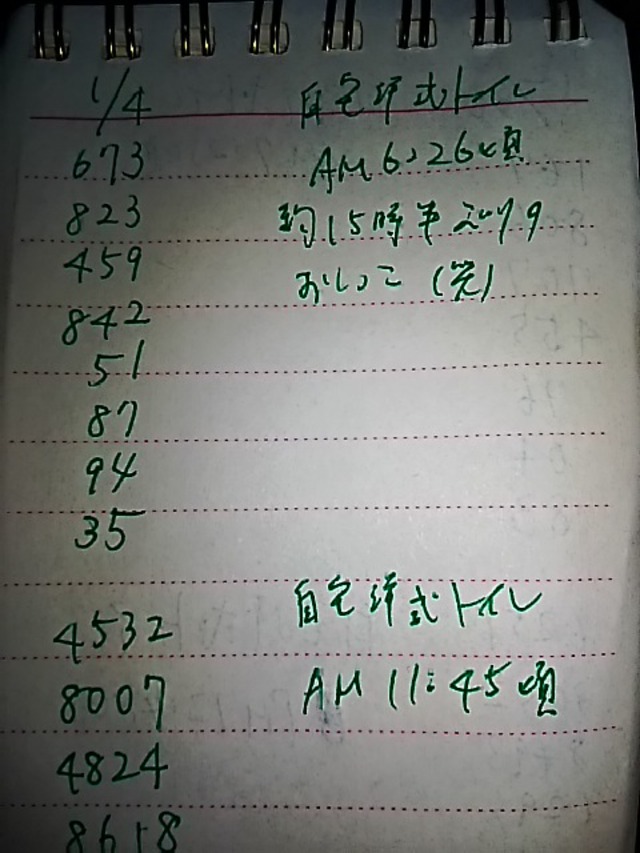 1/4 自宅洋式トイレ
673 AM 6:26頃
823 約15時半ユツ9
459 おしっこ (笑)
842
51
87
94
35
4532 自宅洋式トイレ
8007 AM 11:45頃
4824
8618